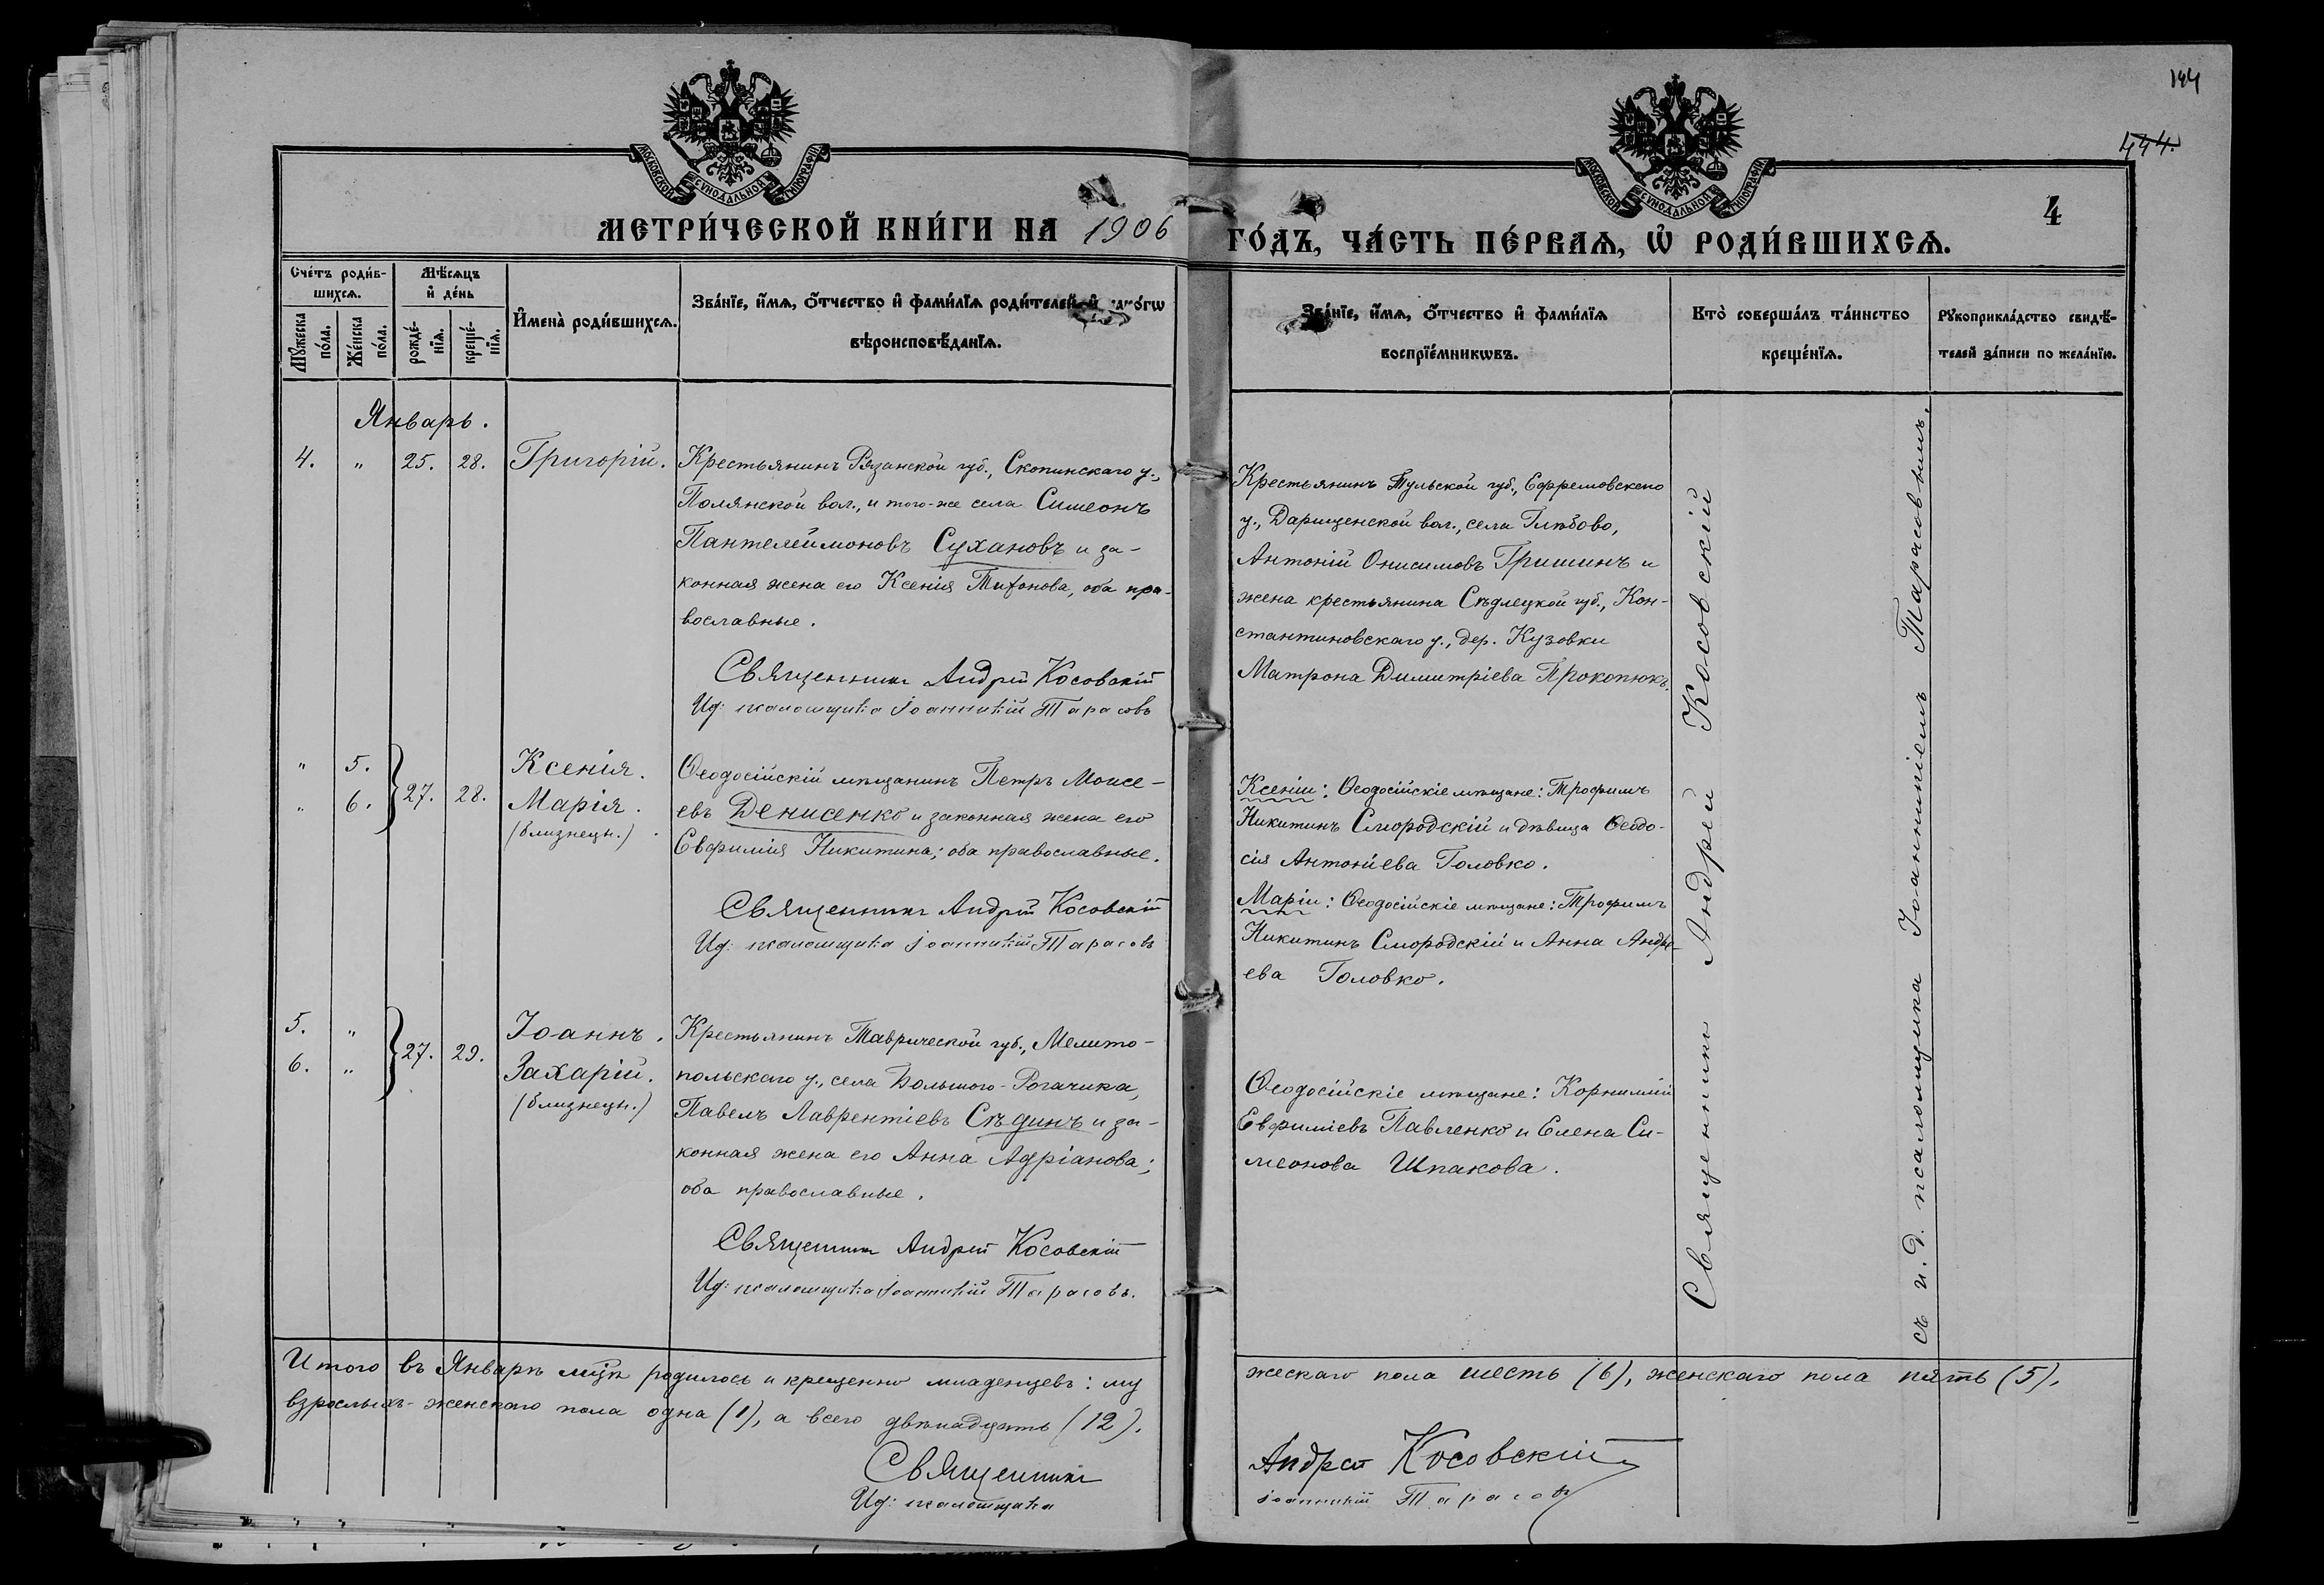 144
444.
4
МОСКОВСКОЙ СѴНОДАЛЬНОЙ ТИПОГРАФІИ
МОСКОВСКОЙ СѴНОДАЛЬНОЙ ТИПОГРАФІИ
МЕТРИ́ЧЕСКОЙ КНИ́ГИ НА 1906
ГО́ДЪ, ЧА́СТЬ ПЕ́РВАѦ, Ѡ҆ РОДИ́ВШИХСѦ.
Сче́тъ роди́в-
шихсѧ.
Мꙋ́жеска
по́ла.
Же́нска
по́ла.
Мѣ́сѧцъ
и҆ де́нь
рожде́-
нїѧ.
креще́-
нїѧ.
И҆мена̀ роди́вшихсѧ.
Зва́нїе, и҆́мѧ, ѻ҆́тчество и҆ фами́лїѧ роди́телей, и҆ како́гѡ
вѣроисповѣ́данїѧ.
Зва́нїе, и҆́мѧ, ѻ҆́тчество и҆ фами́лїѧ
воспрїе́мникѡвъ.
Кто̀ соверша́лъ та́инство
креще́нїѧ.
Рꙋкоприкла́дство свидѣ́-
телей за́писи по жела́нїю.
Январь.
4. " 25. 28. Григорій.
Крестьянинъ Рязанской губ., Скопинскаго у.,
Полянской вол., и того-же села Симеонъ
Пантелеймоновъ Сухановъ и за-
конная жена его Ксенія Тиѳонова, оба пра-
вославные.
Священникъ Андрей Косовскій
Ид: псаломщика Іоанникій Тарасовъ
Крестьянинъ Тульской губ., Ефремовского
у., Дарищенской вол., села Глѣбово,
Антоній Онисимовъ Гришинъ и
жена крестьянина Сѣдлецкой губ., Кон-
стантиновскаго у., дер. Кузовки
Матрона Димитріева Прокопюкъ.
" 5. 27. 28. Ксенія.
" 6. Марія.
(близнецы.)
Ѳеодосійскій мѣщанинъ Петръ Моисе-
евъ Денисенко и законная жена его
Евфимія Никитина; оба православные.
Священникъ Андрей Косовскій
Ид: псаломщика Іоанникій Тарасовъ
Ксеніи: Ѳеодосійскіе мѣщане: Трофимъ
Никитинъ Смородскій и дѣвица Ѳеодо-
сія Антоніева Головко.
Маріи: Ѳеодосійскіе мѣщане: Трофимъ
Никитинъ Смородскій и Анна Андре-
ева Головко.
5. " 27. 29. Іоаннъ.
6. " Захарій.
(близнецы.)
Крестьянинъ Таврической губ., Мелито-
польскаго у., села Большого-Рогачика,
Павелъ Лаврентіевъ Сѣдинъ и за-
конная жена его Анна Адріанова;
оба православные.
Священникъ Андрей Косовскій
Ид: псаломщика Іоанникій Тарасовъ.
Ѳеодосійскіе мѣщане: Корнилій
Евфиміевъ Павленко и Елена Си-
меонова Шпакова.
Священникъ Андрей Косовскій
съ и. д. псаломщика Іоанникіемъ Тарасовымъ.
Итого въ Январѣ мѣсѣ родилось и крещенно младенцевъ: му
жескаго пола шесть (6), женскаго пола пять (5),
взрослыхъ - женскаго пола одна (1), а всего двѣнадцать (12).
Священникъ Андрей Косовскій
Ид: псаломщика Іоанникій Тарасовъ